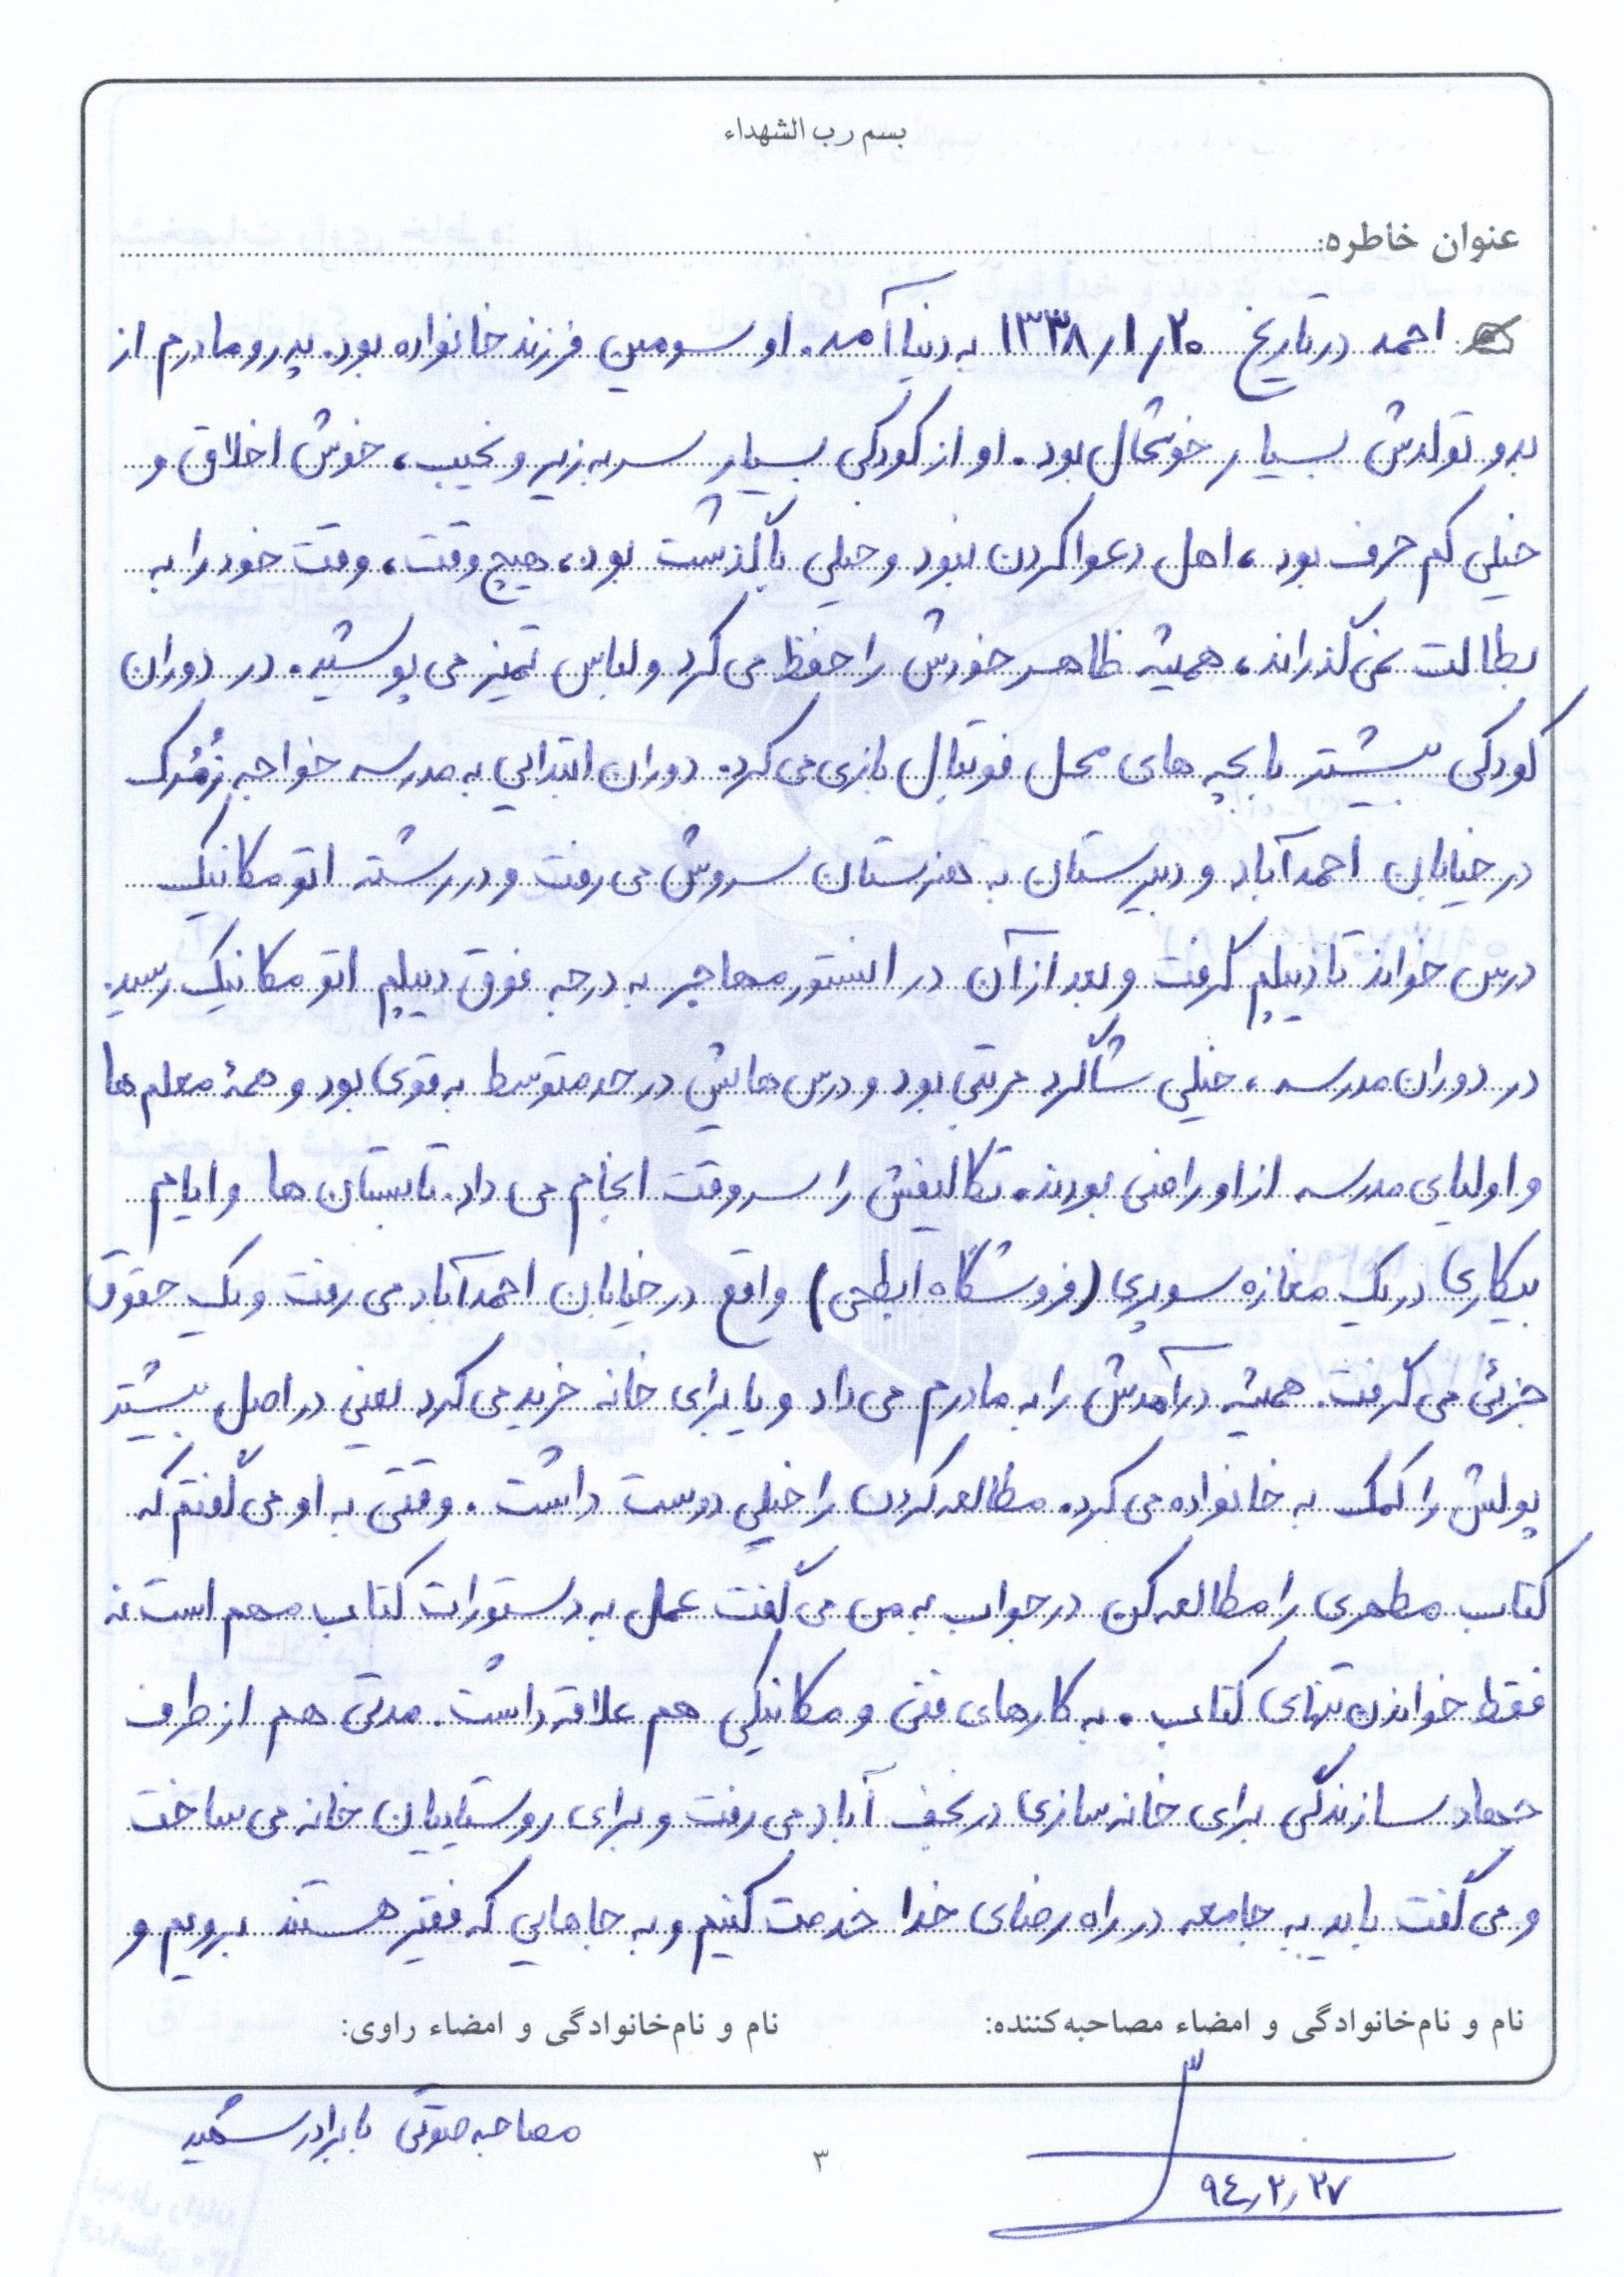 بسم رب الشهداء
عنوان خاطره:
احمد در تاریخ ۱۳۳۸/۱/۲۰ به دنیا آمد. او سومین فرزند خانواده بود. پدر و مادرم از
بدو تولدش بسیار خوشحال بود. او از کودکی بسیار سربه زیر و نجیب، خوش اخلاق و
خیلی کم حرف بود، اهل دعوا کردن نبود و خیلی با گذشت بود، هیچ وقت، وقت خود را به
بطالت نمی گذراند، همیشه ظاهر خودش را حفظ می کرد و لباس تمیز می پوشید. در دوران
کودکی بیشتر با بچه های محل فوتبال بازی می کرد. دوران ابتدایی به مدرسه خواجه زُمُرک
در خیابان احمدآباد و دبیرستان به هنرستان سروش می رفت و در رشته اتومکانیک
درس خواند تا دیپلم گرفت و بعد از آن در انستور مهاجر به درجه فوق دیپلم اتومکانیک رسید.
در دوران مدرسه، خیلی شاگرد مرتبی بود و درس هایش در حد متوسط به قوی بود و همۀ معلم ها
و اولیای مدرسه از او راضی بودند. تکالیفش را سر وقت انجام می داد. تابستان ها و ایام
بیکاری در یک مغازه سوپری (فروشگاه ابطحی) واقع در خیابان احمدآباد می رفت و یک حقوق
جزئی می گرفت. همیشه درآمدش را به مادرم می داد و یا برای خانه خرید می کرد یعنی در اصل بیشتر
پولش را کمک به خانواده می کرد. مطالعه کردن را خیلی دوست داشت. وقتی به او می گفتم که
کتاب مطهری را مطالعه کن در جواب به من می گفت عمل به دستورات کتاب مهم است نه
فقط خواندن تنهای کتاب. به کارهای فنی و مکانیکی هم علاقه داشت. مدتی هم از طرف
جهاد سازندگی برای خانه سازی در نجف آباد می رفت و برای روستاییان خانه می ساخت
و می گفت باید به جامعه در راه رضای خدا خدمت کنیم و به جاهایی که فقیر هستند برویم و
نام و نام‌خانوادگی و امضاء مصاحبه‌کننده: نام و نام‌خانوادگی و امضاء راوی:
مصاحبه صوتی با برادر شهید
۹۴/۲/۲۷
۳